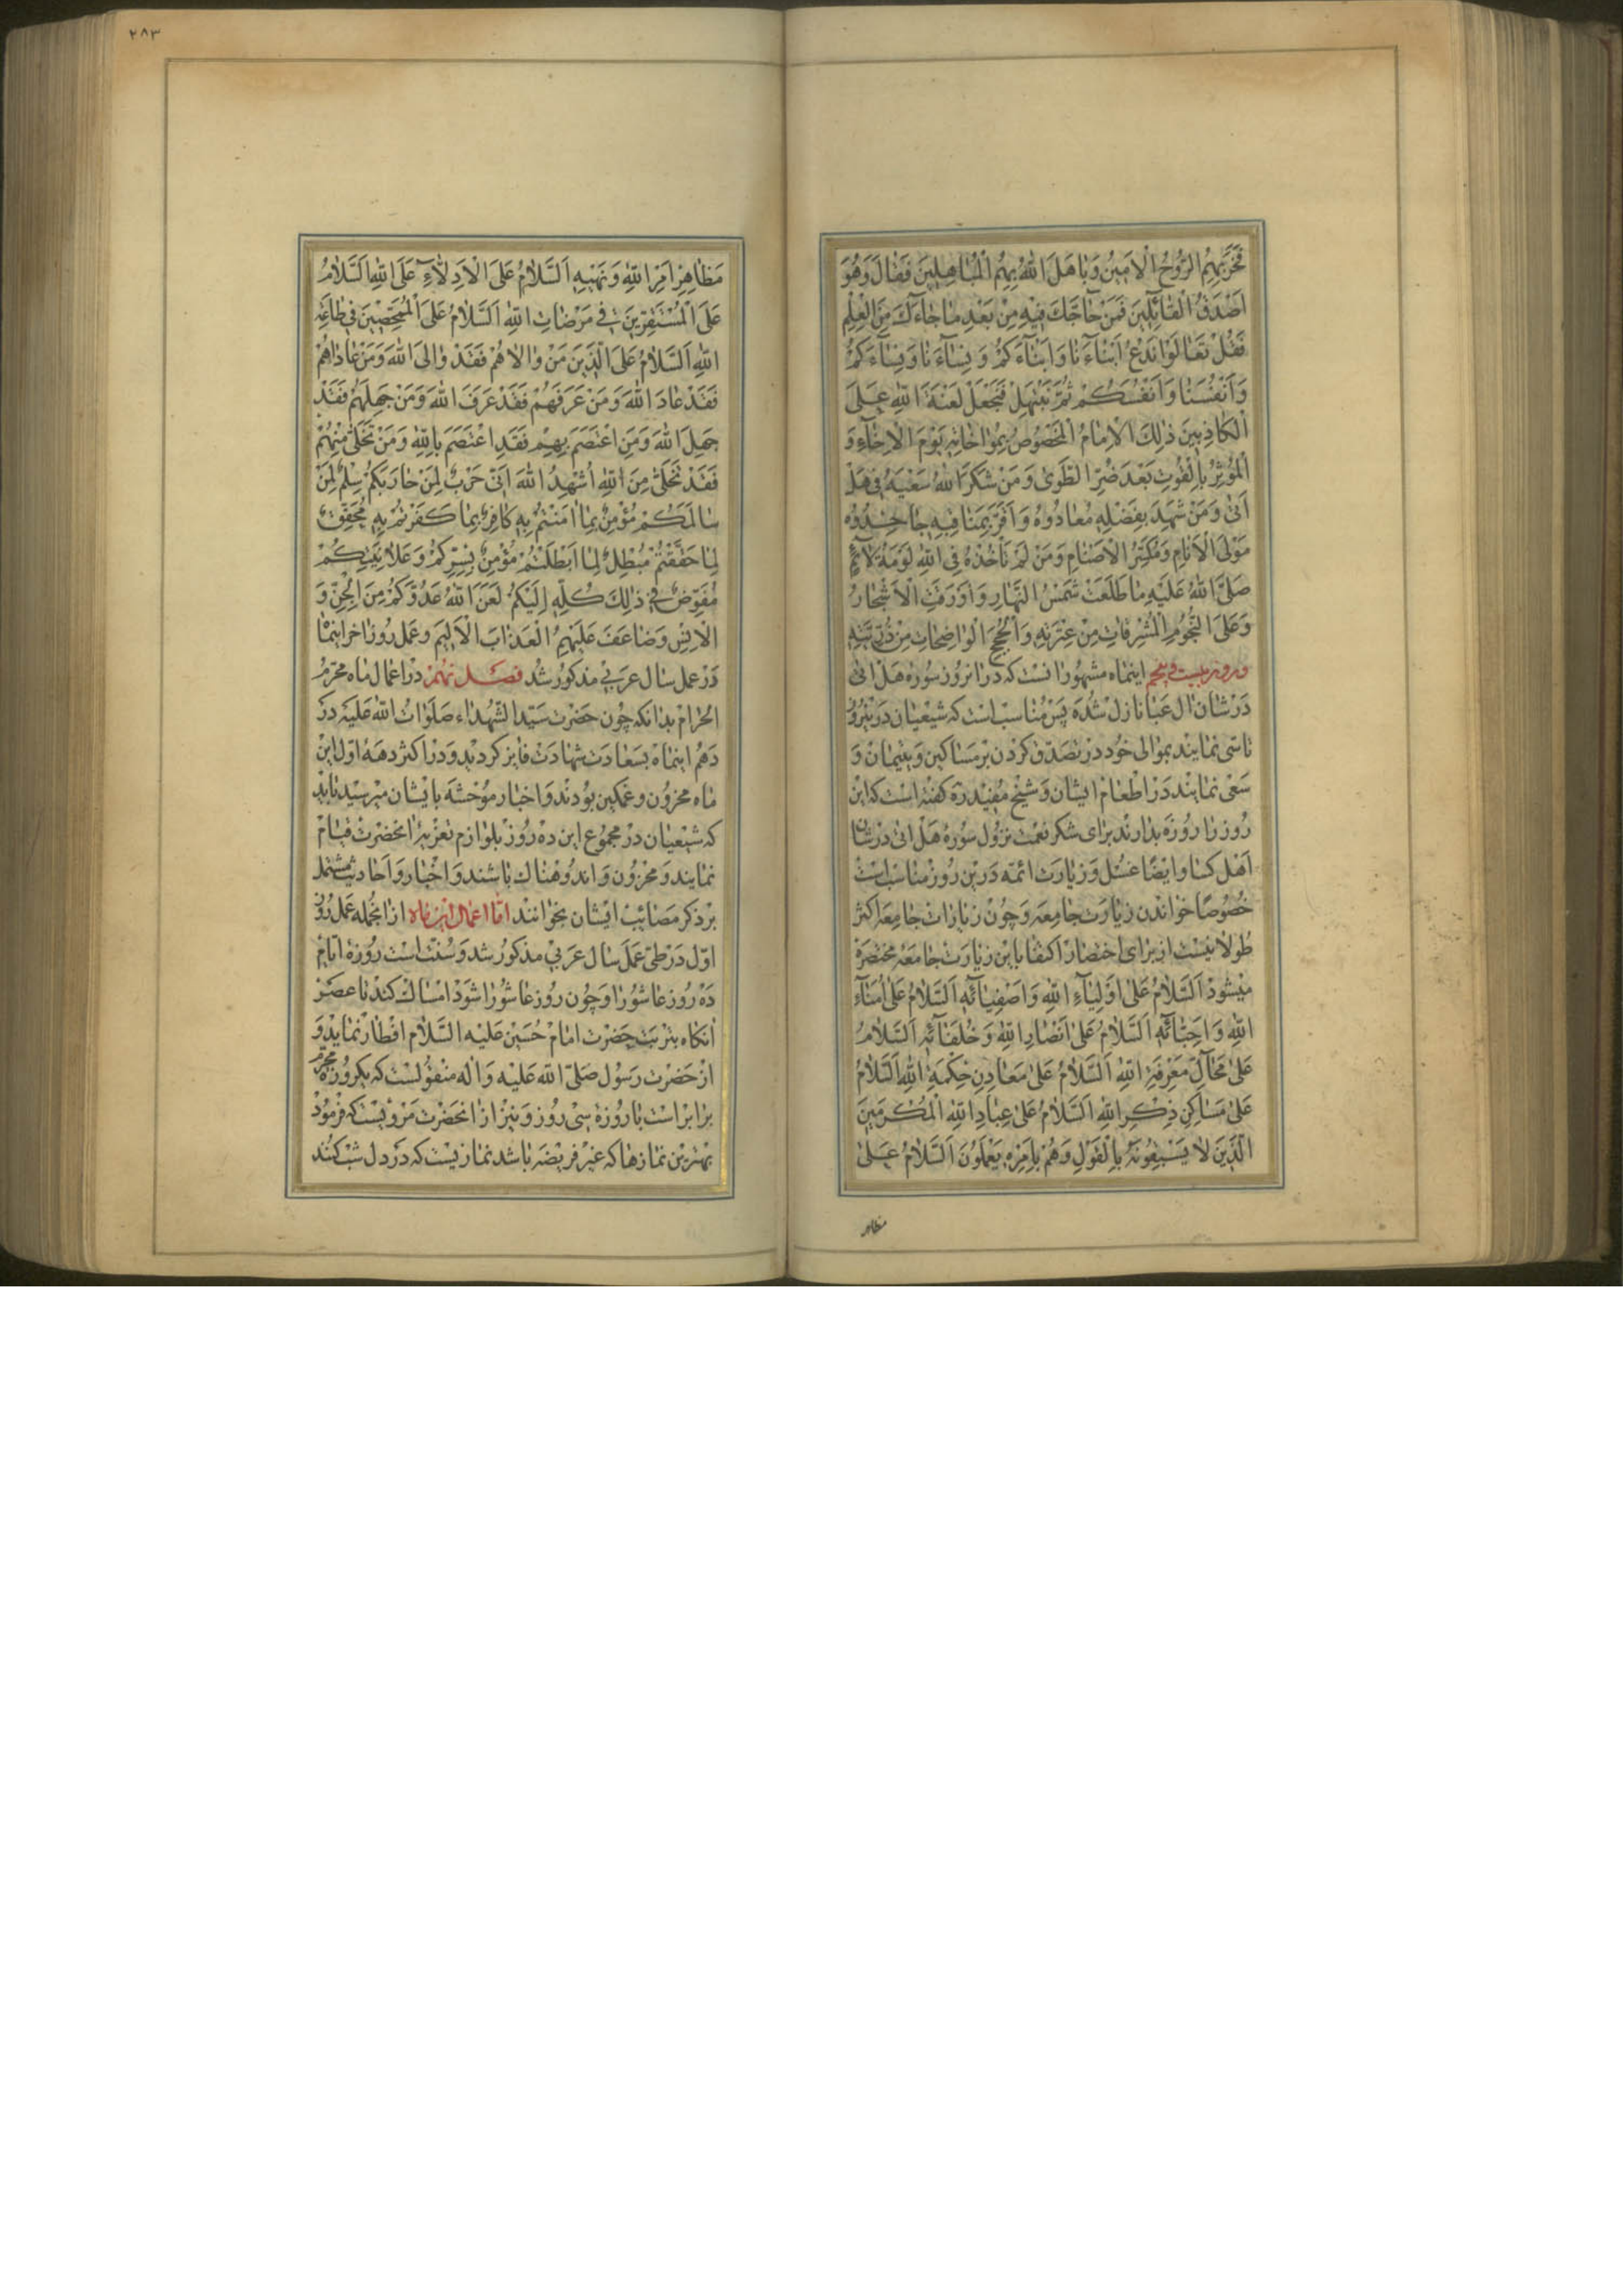 فَخَرَ بِهِمُ الرُّوحُ الْاَمِينُ وَبَاهَلَ اللّٰهُ بِهِمُ الْمُبَاهِلِينَ فَقَالَ وَهُوَ
اَصْدَقُ الْقَائِلِينَ فَمَنْ حَاجَّكَ فِيهِ مِنْ بَعْدِ مَا جَاءَكَ مِنَ الْعِلْمِ
فَقُلْ تَعَالَوْا نَدْعُ اَبْنَاءَنَا وَاَبْنَاءَكُمْ وَنِسَاءَنَا وَنِسَاءَكُمْ
وَاَنْفُسَنَا وَاَنْفُسَكُمْ ثُمَّ نَبْتَهِلْ فَنَجْعَلْ لَعْنَةَ اللّٰهِ عَلَى
الْكَاذِبِينَ ذٰلِكَ الْاِمَامُ الْمَخْصُوصُ بِمُوَاخَاتِهِ يَوْمَ الْاِخَاءِ وَ
الْمُؤْثِرُ بِالْقُوتِ بَعْدَ ضُرِّ الطَّوٰى وَمَنْ شَكَرَ اللّٰهُ سَعْيَهُ فِي هَلْ
اَتٰى وَمَنْ شَهِدَ بِفَضْلِهِ مُعَادُوهُ وَاَقَرَّ بِمَنَاقِبِهِ جَاحِدُوهُ
مَوْلَى الْاَنَامِ وَمُكَسِّرُ الْاَصْنَامِ وَمَنْ لَمْ تَأْخُذْهُ فِي اللّٰهِ لَوْمَةُ لَائِمٍ
صَلَّى اللّٰهُ عَلَيْهِ مَا طَلَعَتْ شَمْسُ النَّهَارِ وَاَوْرَقَتِ الْاَشْجَارُ
وَعَلَى النُّجُومِ الْمُشْرِقَاتِ مِنْ عِتْرَتِهِ وَالْحُجَجِ الْوَاضِحَاتِ مِنْ ذُرِّيَّتِهِ
و در روز بیست و پنجم اینماه مشهور انست که در انروز سوره هل اتی
در شان ال عبا نازل شده پس مناسب است که شیعیان در نیروز
تاسی نمایند بموالی خود در تصدق کردن بر مساکین و یتیمان و
سعی نمایند در اطعام ایشان و شیخ مفید ره گفته است که این
روز را روزه بدارند برای شکر نعمت نزول سوره هل اتی در شان
اهل کسا و ایضا غسل و زیارت ائمه درین روز مناسب است
خصوصا خواندن زیارت جامعه و چون زیارات جامعه اکثر
طولانیست از برای اختصار اکتفا باین زیارت جامعه مختصره
میشود اَلسَّلَامُ عَلٰى اَوْلِيَاءِ اللّٰهِ وَاَصْفِيَائِهِ اَلسَّلَامُ عَلٰى اُمَنَاءِ
اللّٰهِ وَاَحِبَّائِهِ اَلسَّلَامُ عَلٰى اَنْصَارِ اللّٰهِ وَخُلَفَائِهِ اَلسَّلَامُ
عَلٰى مَحَالِّ مَعْرِفَةِ اللّٰهِ اَلسَّلَامُ عَلٰى مَعَادِنِ حِكْمَةِ اللّٰهِ اَلسَّلَامُ
عَلٰى مَسَاكِنِ ذِكْرِ اللّٰهِ اَلسَّلَامُ عَلٰى عِبَادِ اللّٰهِ الْمُكْرَمِينَ
الَّذِينَ لَا يَسْبِقُونَهُ بِالْقَوْلِ وَهُمْ بِاَمْرِهِ يَعْمَلُونَ اَلسَّلَامُ عَلٰى
مظاهر
۲۸۳
مَظَاهِرِ اَمْرِ اللّٰهِ وَنَهْيِهِ اَلسَّلَامُ عَلَى الْاَدِلَّاءِ عَلَى اللّٰهِ اَلسَّلَامُ
عَلَى الْمُسْتَقِرِّينَ فِي مَرْضَاتِ اللّٰهِ اَلسَّلَامُ عَلَى الْمُمَحَّصِينَ فِي طَاعَةِ
اللّٰهِ اَلسَّلَامُ عَلَى الَّذِينَ مَنْ وَالَاهُمْ فَقَدْ وَالَى اللّٰهَ وَمَنْ عَادَاهُمْ
فَقَدْ عَادَ اللّٰهَ وَمَنْ عَرَفَهُمْ فَقَدْ عَرَفَ اللّٰهَ وَمَنْ جَهِلَهُمْ فَقَدْ
جَهِلَ اللّٰهَ وَمَنِ اعْتَصَمَ بِهِمْ فَقَدِ اعْتَصَمَ بِاللّٰهِ وَمَنْ تَخَلّٰى مِنْهُمْ
فَقَدْ تَخَلّٰى مِنَ اللّٰهِ اُشْهِدُ اللّٰهَ اَنِّي حَرْبٌ لِمَنْ حَارَبَكُمْ سِلْمٌ لِمَنْ
سَالَمَكُمْ مُؤْمِنٌ بِمَا اٰمَنْتُمْ بِهِ كَافِرٌ بِمَا كَفَرْتُمْ بِهِ مُحَقِّقٌ
لِمَا حَقَّقْتُمْ مُبْطِلٌ لِمَا اَبْطَلْتُمْ مُؤْمِنٌ بِسِرِّكُمْ وَعَلَانِيَتِكُمْ
مُفَوِّضٌ فِي ذٰلِكَ كُلِّهِ اِلَيْكُمْ لَعَنَ اللّٰهُ عَدُوَّكُمْ مِنَ الْجِنِّ وَ
الْاِنْسِ وَضَاعَفَ عَلَيْهِمُ الْعَذَابَ الْاَلِيمَ و عمل روز اخر اینماه
در عمل سال عربی مذکور شد فصل نهم در اعمال ماه محرم
الحرام بدانکه چون حضرت سید الشهداء صلوات الله علیه در
دهم اینماه بسعادت شهادت فایز کردید و در اکثر دهه اول این
ماه محزون و غمکین بودند و اخبار موحشه بایشان میرسید باید
که شیعیان در مجموع این ده روز بلوازم تعزیه انحضرت قیام
نمایند و محزون و اندوهناک باشند و اخبار و احادیث مشتمل
بر ذکر مصائب ایشان بخوانند اما اعمال این ماه از انجمله عمل روز
اول در طی عمل سال عربی مذکور شد و سنت است روزه ایام
ده روز عاشورا و چون روز عاشورا شود امساک کند تا عصر
انکاه بتربت حضرت امام حسین علیه السلام افطار نماید و
از حضرت رسول صلی الله علیه و اله منقولست که یکروزه محرم
برابر است با روزه سی روز و نیز از انحضرت مرویست که فرمود
بهترین نمازها که غیر فریضه باشد نمازیست که در دل شب کنند